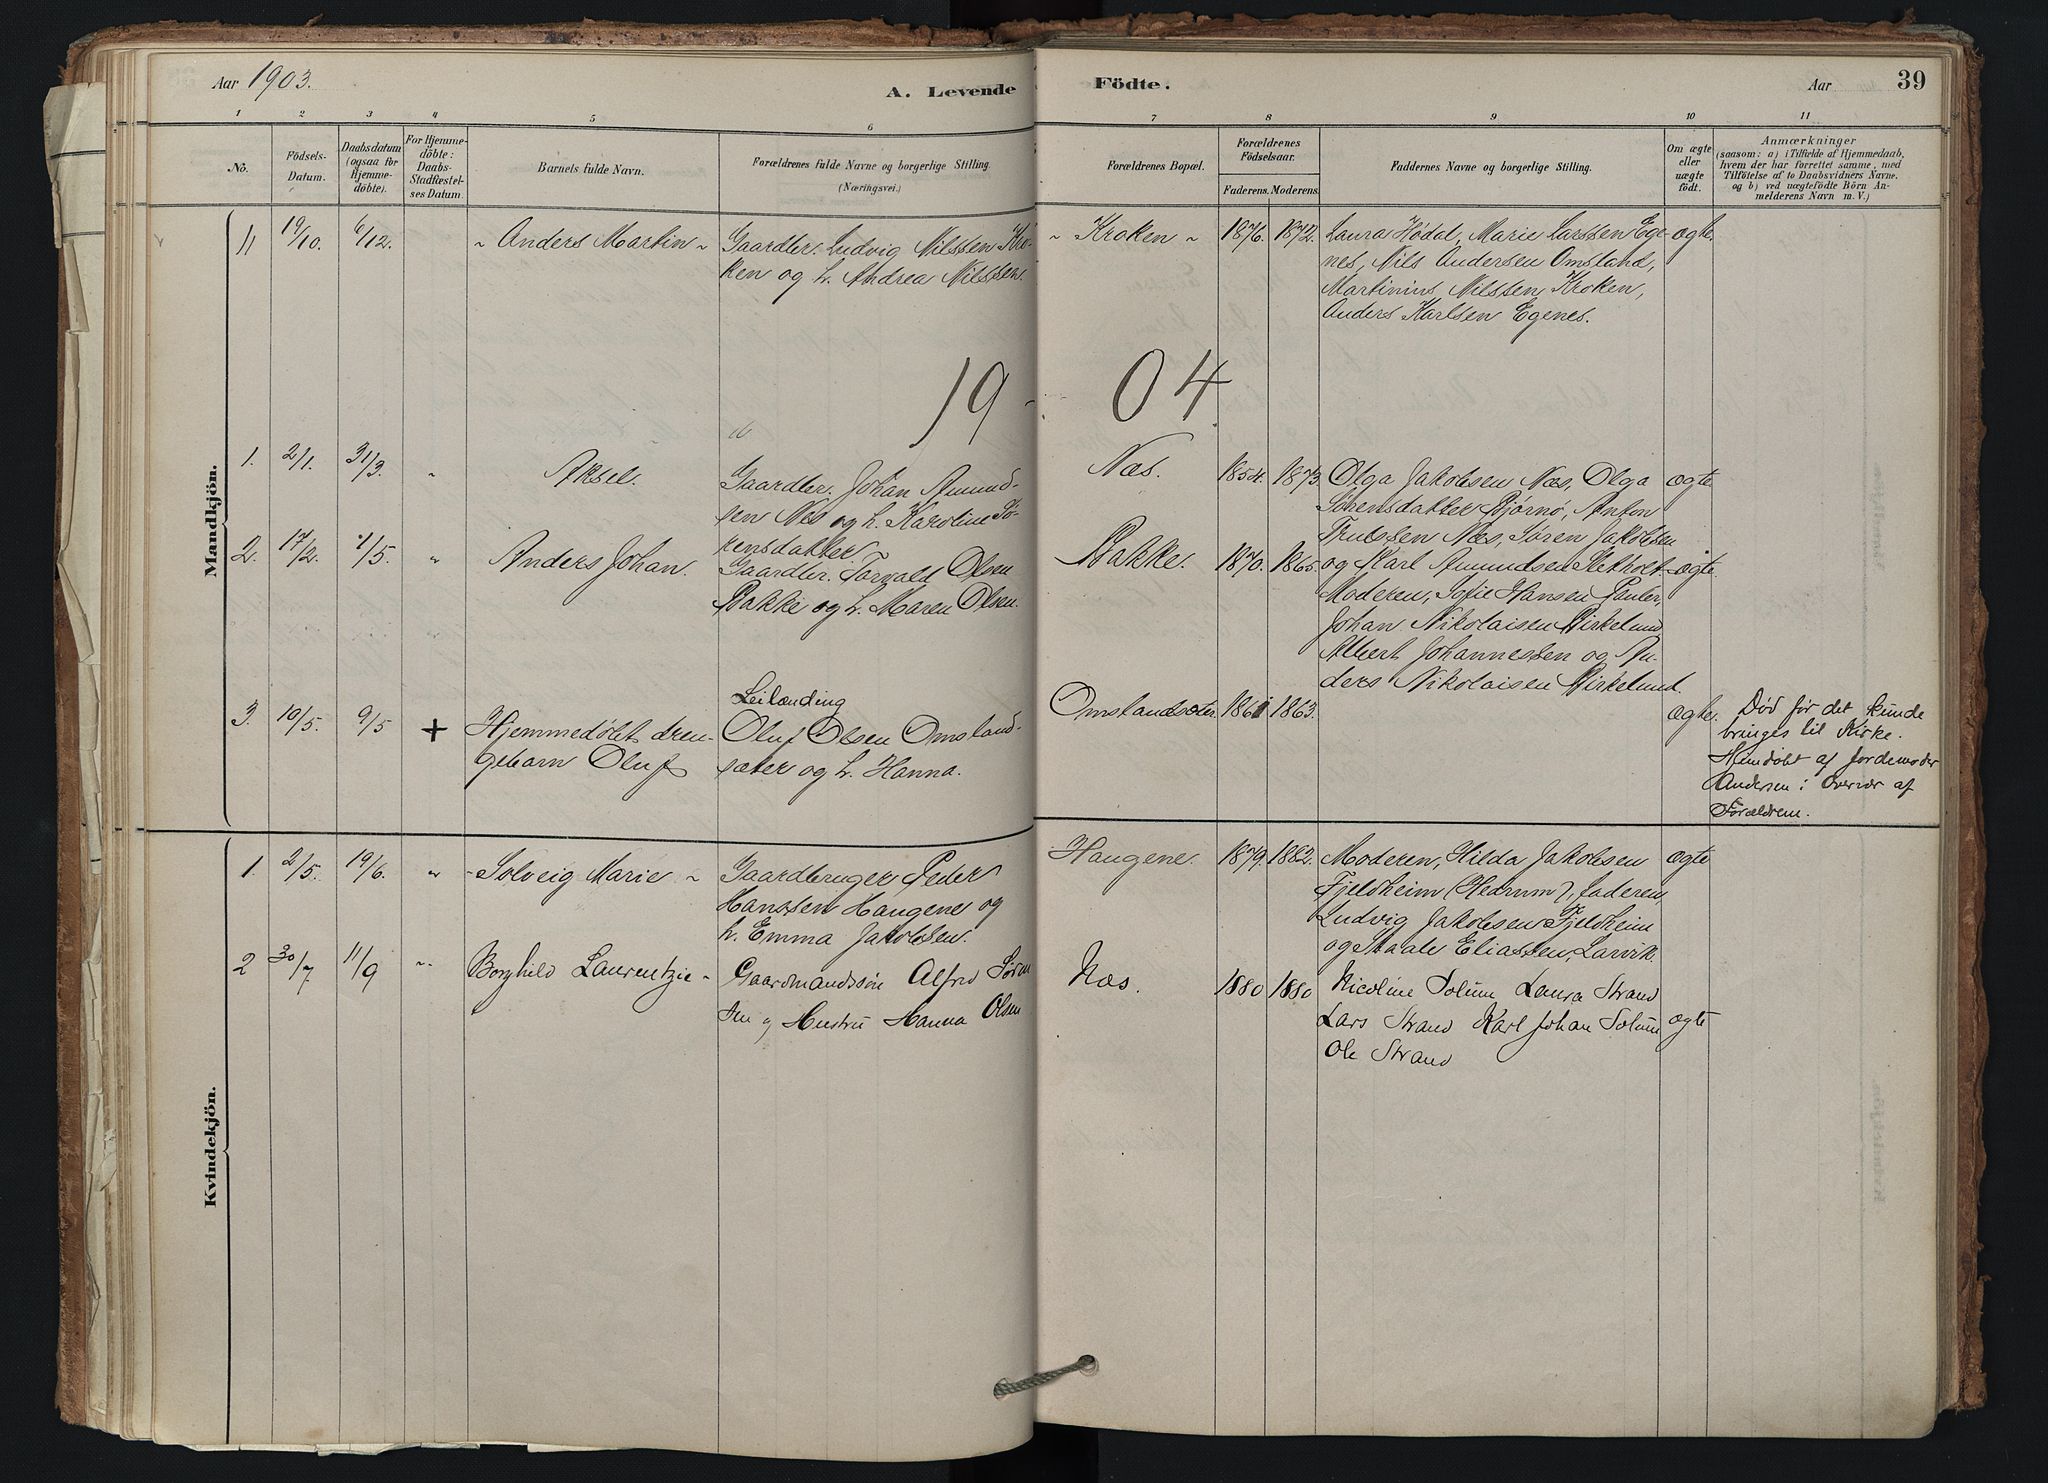 Aar 1903.
A. Levende
Födte.
Aar
39
1 2 3 4 5 6 7 8 9 10 11
No.
Födsels-
Datum.
Daabsdatum
(ogsaa for
Hjemme-
döbte).
For Hjemme-
döbte:
Daabs-
Stadfæstel-
ses Datum
Barnets fulde Navn.
Forældrenes fulde Navne og borgerlige Stilling
(Næringsvei.)
Forældrenes Bopæl.
Forældrenes
Födselsaar.
Faderens. Moderens.
Faddernes Navne og borgerlige Stilling.
Om ægte
eller
uægte
født.
Anmærkninger
(saasom: a) i Tilfælde af Hjemmedaab,
hvem der har forrettet samme, med
Tilföielse af to Daabsvidners Navne.
og b) ved uægtefödte Börn An-
melderens Navn m. V.)
Mandkjön.
11 19/10. 6/12. " Anders Martin " Gaardbr. Ludvig Nilssen Kro-
ken og h. Andrea Nilssen.
" Kroken " 1876. 1872. Laura Hødal, Marie Larssen Ege- ægte.
nes, Nils Andersen Omsland,
Martinius Nilssen Kroken,
Anders Karlsen Egenes.
19 04
1. 2/1. 31/3. " Aksel. Gaardbr. Johan Amund-
sen Næs og h. Karoline Sø-
rensdatter
Næs. 1854. 1873. Olga Jakobsen Næs, Olga ægte
Sørensdatter Bjørnø, Anton
Trulssen Næs, Søren Jakobsen
og Karl Amundsen
2. 17/2. 1/5. " Anders Johan. Gaardbr. Torvald Olsen
Bakke og h. Maren Olsen.
Bakke. 1870. 1865. ægte.
Moderen, Sofie Hansen Pauler,
Johan Nikolaisen Birkelund
Albert Johannessen og An-
ders Nikolaisen Birkelund.
3. 10/5. 9/5 + Hjemmedøbt dren-
gebarn Oluf
Leilænding
Oluf Olsen Omsland-
sæter og h. Hanna.
Omslandsæter. 1861 1863. ægte.
Død før det kunde
bringes til Kirke.
Hjemdøbt af Jordemoder
Andersen i Overvær af
Forældrene.
Kvindekjön.
1. 2/5. 19/6. " - Solveig Marie " Gaardbruger Peder
Hanssen Haugene og
h. Emma Jakobsen.
Haugene. 1879. 1882. Moderen, Hilda Jakobsen ægte
Fjeldheim (Hedrum), faderen,
Ludvig Jakobsen Fjeldheim
og Staale Eliassen, Larvik.
2 30/7 11/9 " Borghild Laurentzie " Gaardmandssøn Alfred Søren
sen og Hustru Hanna Olsen
Næs. 1880 1880 Nicoline Solum Laura Strand
Lars Strand Karl Johan Solum ægte
Ole Strand